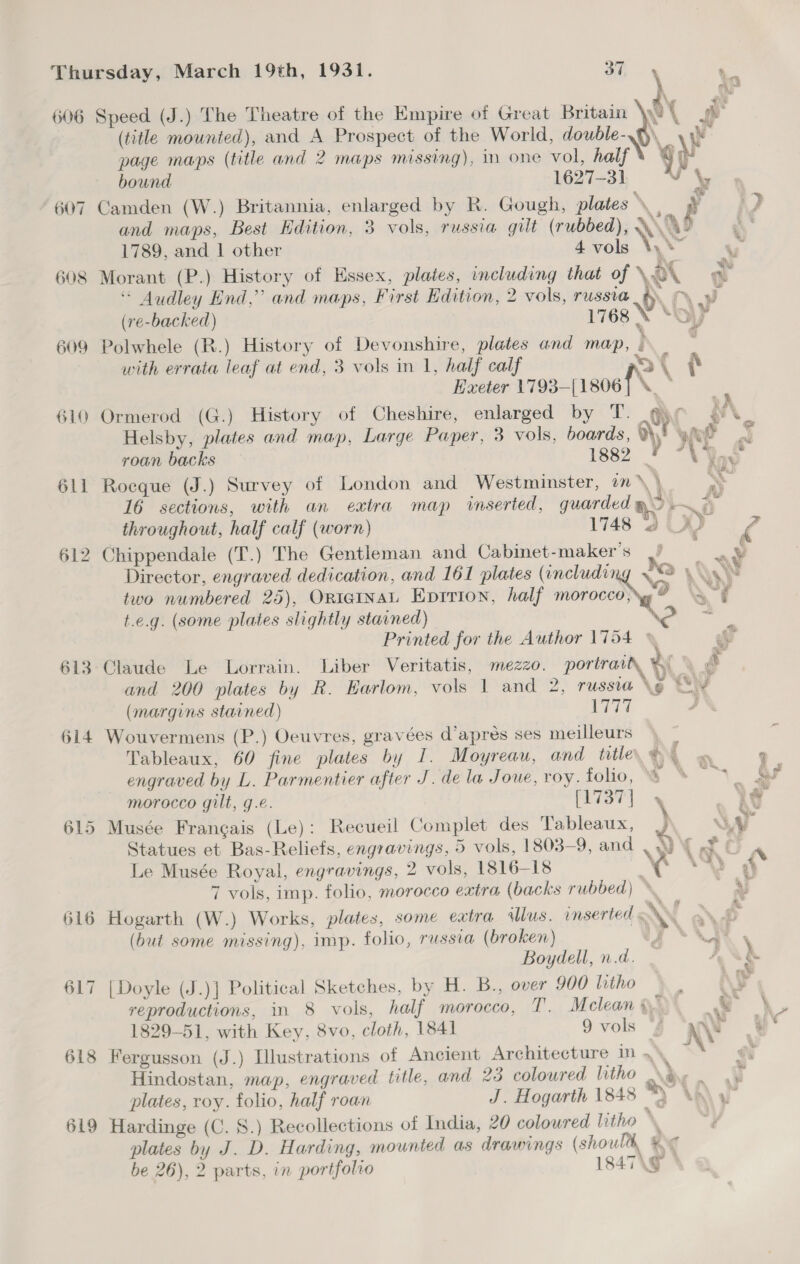 Thursday, March 19th, 1931. 37
606 Speed (J.) The Theatre of the Empire of Great Britain
(title mounted), and A Prospect of the World, double-
page maps (title and 2 maps missing), in one vol, half
bound 1627–31
607 Camden (W.) Britannia, enlarged by R. Gough, plates
and maps, Best Edition, 3 vols, russia gilt (rubbed),
1789, and 1 other 4 vols
608 Morant (P.) History of Essex, plates, including that of
“Audley End,” and maps, First Edition, 2 vols, russia
(re-backed) 1768
609 Polwhele (R.) History of Devonshire, plates and map,
with errata leaf at end, 3 vols in 1, half calf
Exeter 1793–[1806]
610 Ormerod (G.) History of Cheshire, enlarged by T.
Helsby, plates and map, Large Paper, 3 vols, boards,
roan backs 1882
611 Rocque (J.) Survey of London and Westminster, in
16 sections, with an extra map inserted, guarded
throughout, half calf (worn) 1748
612 Chippendale (T.) The Gentleman and Cabinet-maker's
Director, engraved dedication, and 161 plates (including
two numbered 25), ORIGINAL EDITION, half morocco,
t.e.g. (some plates slightly stained)
Printed for the Author 1754
613 Claude Le Lorrain. Liber Veritatis, mezzo. portrait,
and 200 plates by R. Earlom, vols 1 and 2, russia
(margins stained) 1777
614 Wouvermens (P.) Oeuvres, gravées d'aprés ses meilleurs
Tableaux, 60 fine plates by I. Moyreau, and title
engraved by L. Parmentier after J. de la Joue, roy. folio,
morocco gilt, g.e. [1737]
615 Musée Français (Le): Recueil Complet des Tableaux,
Statues et Bas-Reliefs, engravings, 5 vols, 1803–9, and
Le Musée Royal, engravings, 2 vols, 1816–18
7 vols, imp. folio, morocco extra (backs rubbed)
616 Hogarth (W.) Works, plates, some extra illus. inserted
(but some missing), imp. folio, russia (broken)
Boydell, n.d.
617 [Doyle (J.)] Political Sketches, by H. B., over 900 litho
reproductions, in 8 vols, half morocco, T. Mclean
1829–51, with Key, 8vo, cloth, 1841 9 vols
618 Fergusson (J.) Illustrations of Ancient Architecture in
Hindostan, map, engraved title, and 23 coloured litho
plates, roy. folio, half roan J. Hogarth 1848
619 Hardinge (C. S.) Recollections of India, 20 coloured litho
plates by J. D. Harding, mounted as drawings (should
be 26), 2 parts, in portfolio 1847